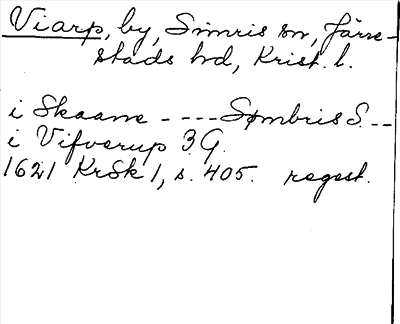 Viarp, by, Simris sn, Järre-
stads hd, Krist. l.
i Skaane - - - - Sømbris S. - -
i Vifverup 3 G.
1621 KrSk 1, s. 405. regest.